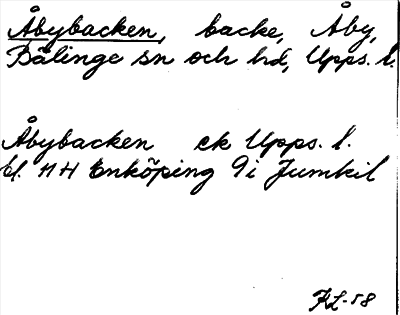 Åbybacken, backe, Åby,
Bälinge sn och hd, Upps. l.
Åbybacken ek Upps. l.
bl. 11 H Enköping 9i Jumkil
KL-58